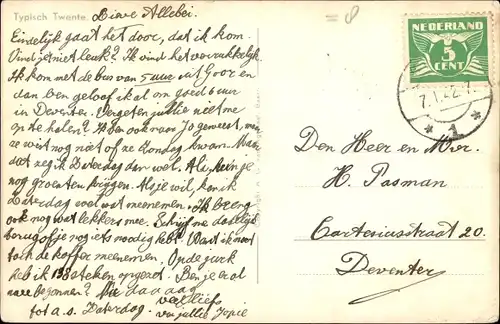 Typisch Twente.
Lieve Allebei.
Eindelijk gaat het door, dat ik kom.
Vind je niet leuk? Ik vind het verrukkelijk.
Ik kom met de bus van 5 uur uit Goor en
dan ben geloof ik al om goed 6 uur
in Deventer. Vergeten jullie niet me
op te halen? Ik ben ook van Jo geweest, van
ze wist nog niet of ze Zondag kwam. Maar
dat zeg ik Zaterdag dan wel. Als
nog groeten krijgen. Als je wil, kan ik
Zaterdag wel wat meenemen. Ik breng
ook nog wat lekkers mee. Schrijf me dadelijk
terug of je nog iets noodig hebt. Want ik moet
toch de koffer meenemen. Op de jurk
heb ik 138 steken opgezet. Ben je er al
mee begonnen? Nu dag dag
tot a.s. Zaterdag. veel liefs
van jullie Jopie
NEDERLAND
5
CENT
1
Den Heer en Mevr.
H. Pasman
Cartesiusstraat 20.
Deventer